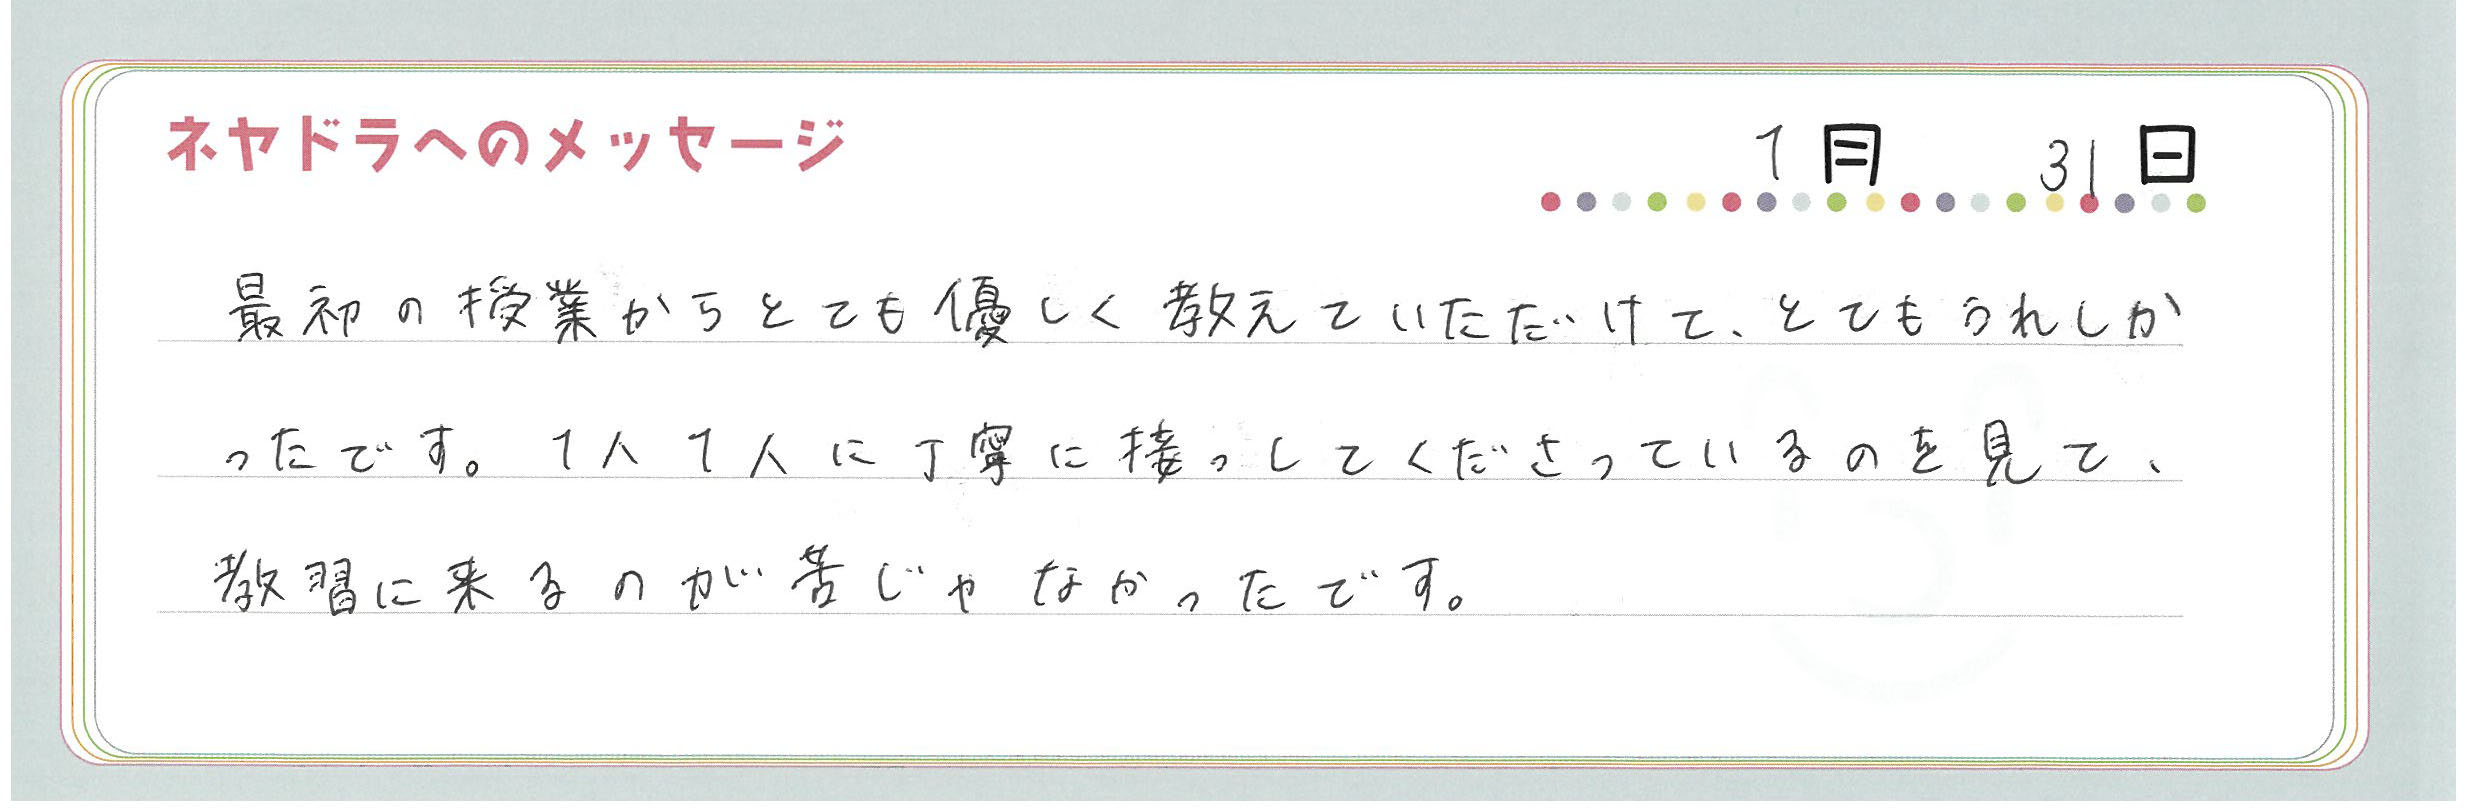 ネヤドラへのメッセージ
1月 31日
最初の授業からとても優しく教えていただけて、とてもうれしか
ったです。1人1人に丁寧に接っしてくださっているのを見て、
教習に来るのが苦じゃなかったです。